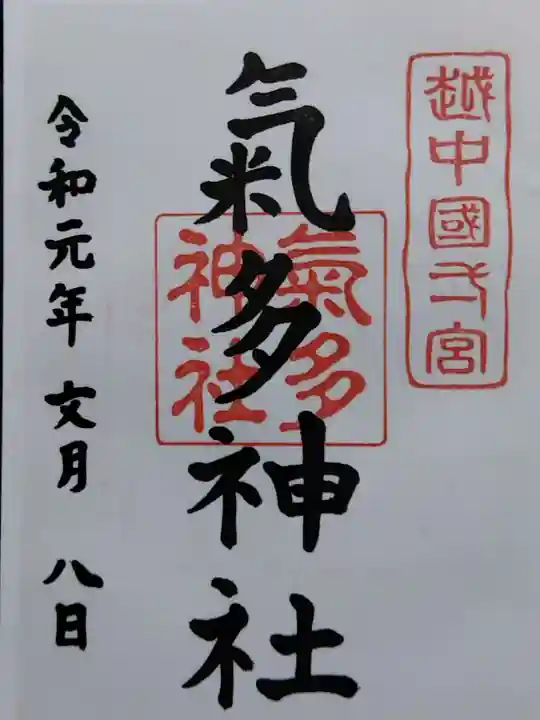 越中國弌宮
氣多神社
氣多
神社
令和元年 文月 八日